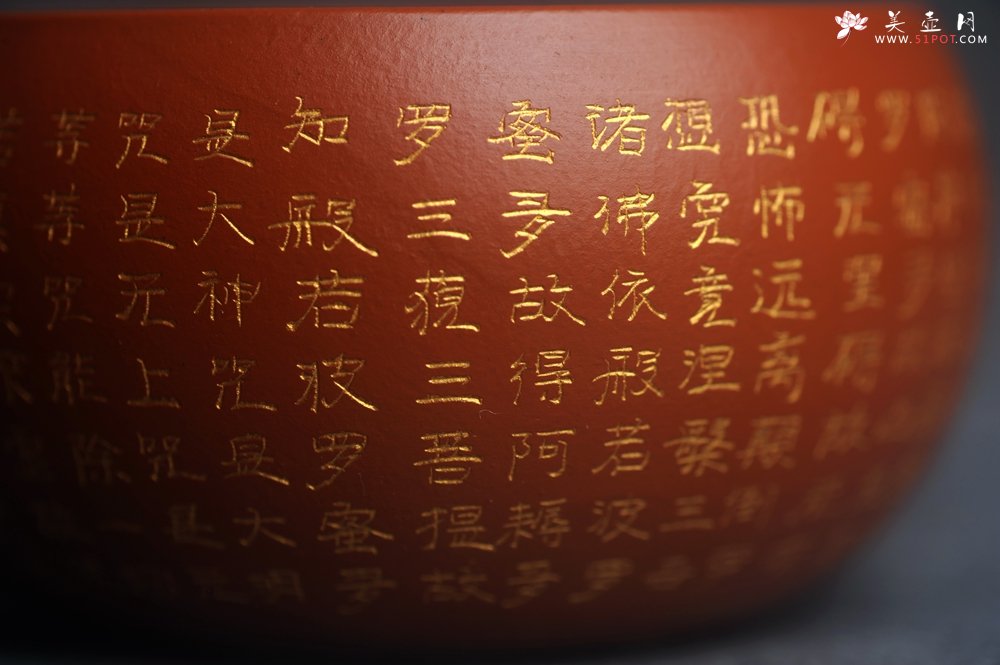 碍无罣碍故
恐怖远离颠倒
想究竟涅槃三世
诸佛依般若波罗
蜜多故得阿耨多
罗三藐三菩提故
知般若波罗蜜多
是大神咒是大明
咒是无上咒是无
等等咒能除一切
美壶网
WWW.51POT.COM